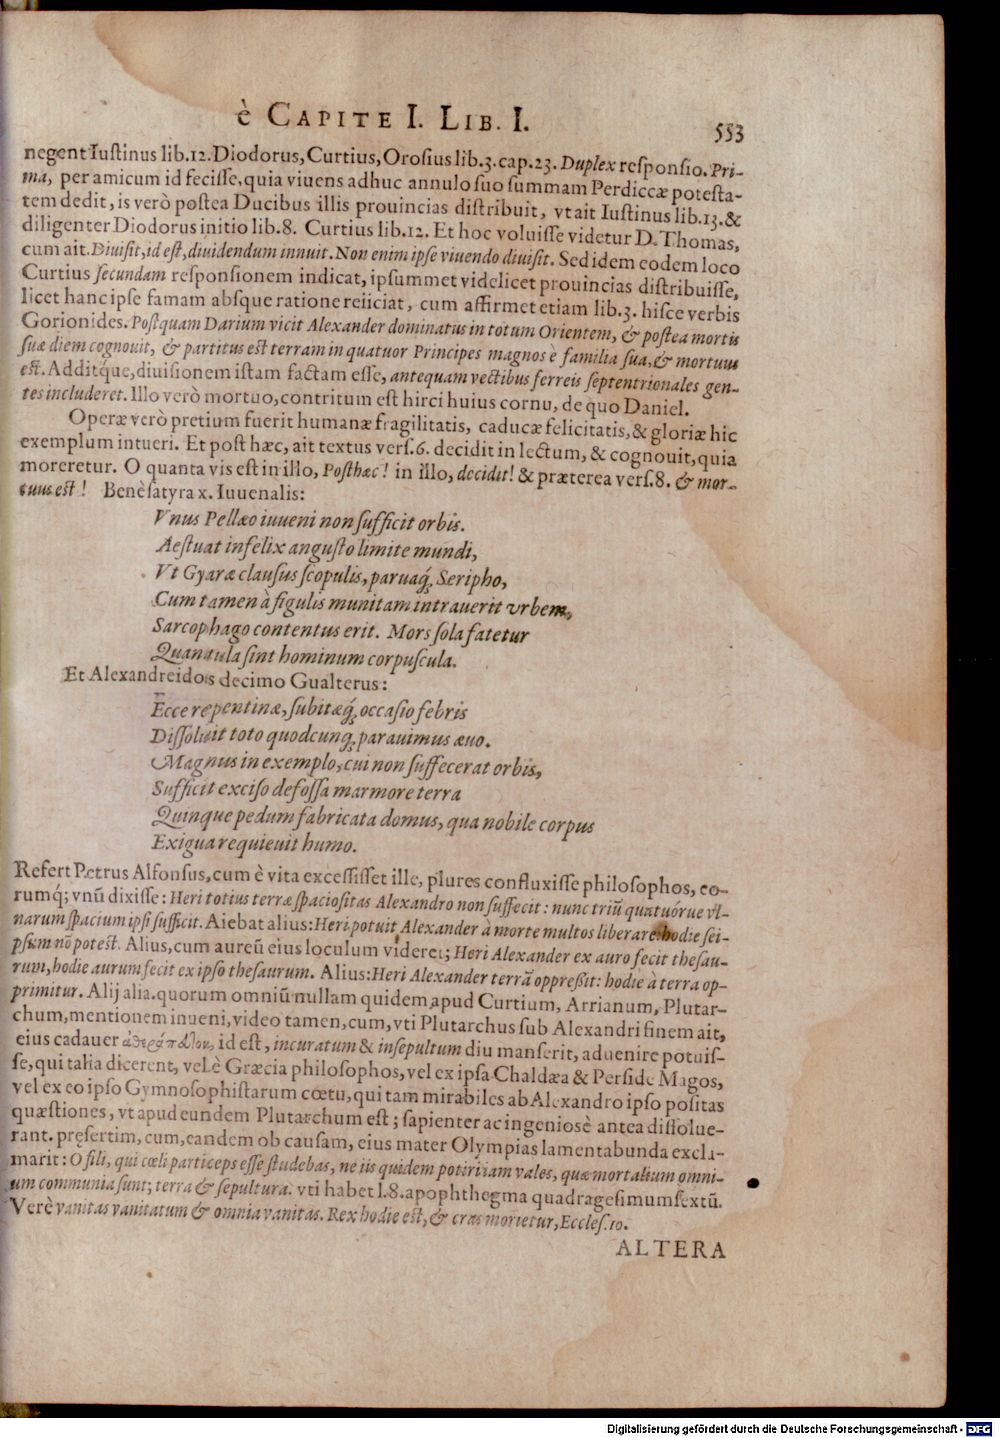 è CAPITE I. LIB. I.
553
negent Iustinus lib.12. Diodorus, Curtius, Orosius lib.3. cap.23. Duplex responsio. Pri-
ma, per amicum id fecisse, quia viuens adhuc annulo suo summam Perdiccæ potesta-
tem dedit, is verò postea Ducibus illis prouincias distribuit, vt ait Iustinus lib.13. &
diligenter Diodorus initio lib.8. Curtius lib.12. Et hoc voluisse videtur D. Thomas,
cum ait. Diuisit, id est, diuidendum innuit. Non enim ipse viuendo diuisit. Sed idem eodem loco
Curtius secundam responsionem indicat, ipsummet videlicet prouincias distribuisse,
licet hanc ipse famam absque ratione reiiciat, cum affirmet etiam lib.3. hisce verbis
Gorionides. Postquam Darium vicit Alexander dominatus in totum Orientem, & postea mortis
suæ diem cognouit, & partitus est terram in quatuor Principes magnos è familia sua, & mortuus
est. Additq́ue, diuisionem istam factam esse, antequam vectibus ferreis septentrionales gen-
tes includeret. Illo verò mortuo, contritum est hirci huius cornu, de quo Daniel.
Operæ verò pretium fuerit humanæ fragilitatis, caducæ felicitatis, & gloriæ hic
exemplum intueri. Et post hæc, ait textus vers.6. decidit in lectum, & cognouit, quia
moreretur. O quanta vis est in illo, Posthæc! in illo, decidit! & præterea vers.8. & mor-
tuus est! Benè satyra x. Iuuenalis:
Vnus Pellæo iuueni non sufficit orbis.
Aestuat infelix angusto limite mundi,
Vt Gyaræ clausus scopulis, paruaq́; Seripho,
Cum tamen à figulis munitam intrauerit vrbem,
Sarcophago contentus erit. Mors sola fatetur
Quantula sint hominum corpuscula.
Et Alexandreidos decimo Gualterus:
Ecce repentinæ, subitæq́; occasio febris
Dissoluit toto quodcunq; parauimus æuo.
Magnus in exemplo, cui non suffecerat orbis,
Sufficit exciso defossa marmore terra
Quinque pedum fabricata domus, qua nobile corpus
Exigua requieuit humo.
Refert Petrus Alfonsus, cum è vita excessisset ille, plures confluxisse philosophos, eo-
rumq́; vnũ dixisse: Heri totius terræ spaciositas Alexandro non suffecit: nunc triũ quatuórue vl-
narum spacium ipsi sufficit. Aiebat alius: Heri potuit Alexander à morte multos liberare: hodie sei-
psum nõ potest. Alius, cum aureũ eius loculum videret; Heri Alexander ex auro fecit thesau-
rum, hodie aurum fecit ex ipso thesaurum. Alius: Heri Alexander terrã oppressit: hodie à terra op-
primitur. Alij alia. quorum omniũ nullam quidem apud Curtium, Arrianum, Plutar-
chum, mentionem inueni, video tamen, cum, vti Plutarchus sub Alexandri finem ait,
eius cadauer id est, incuratum & insepultum diu manserit, aduenire potuis-
se, qui talia dicerent, vel è Græcia philosophos, vel ex ipsa Chaldæa & Perside Magos,
vel ex eo ipso Gymnosophistarum cœtu, qui tam mirabiles ab Alexandro ipso positas
quæstiones, vt apud eundem Plutarchum est; sapienter ac ingeniosè antea dissolue-
rant. pręsertim, cum, eandem ob causam, eius mater Olympias lamentabunda excla-
marit: O fili, qui cœli particeps esse studebas, ne iis quidem potiri iam vales, quæ mortalium omni-
um communia sunt; terra & sepultura. vti habet l.8. apophthegma quadragesimum sextũ.
Verè vanitas vanitatum & omnia vanitas. Rex hodie est, & cras morietur, Eccles. 10.
ALTERA
Digitalisierung gefördert durch die Deutsche Forschungsgemeinschaft - DFG